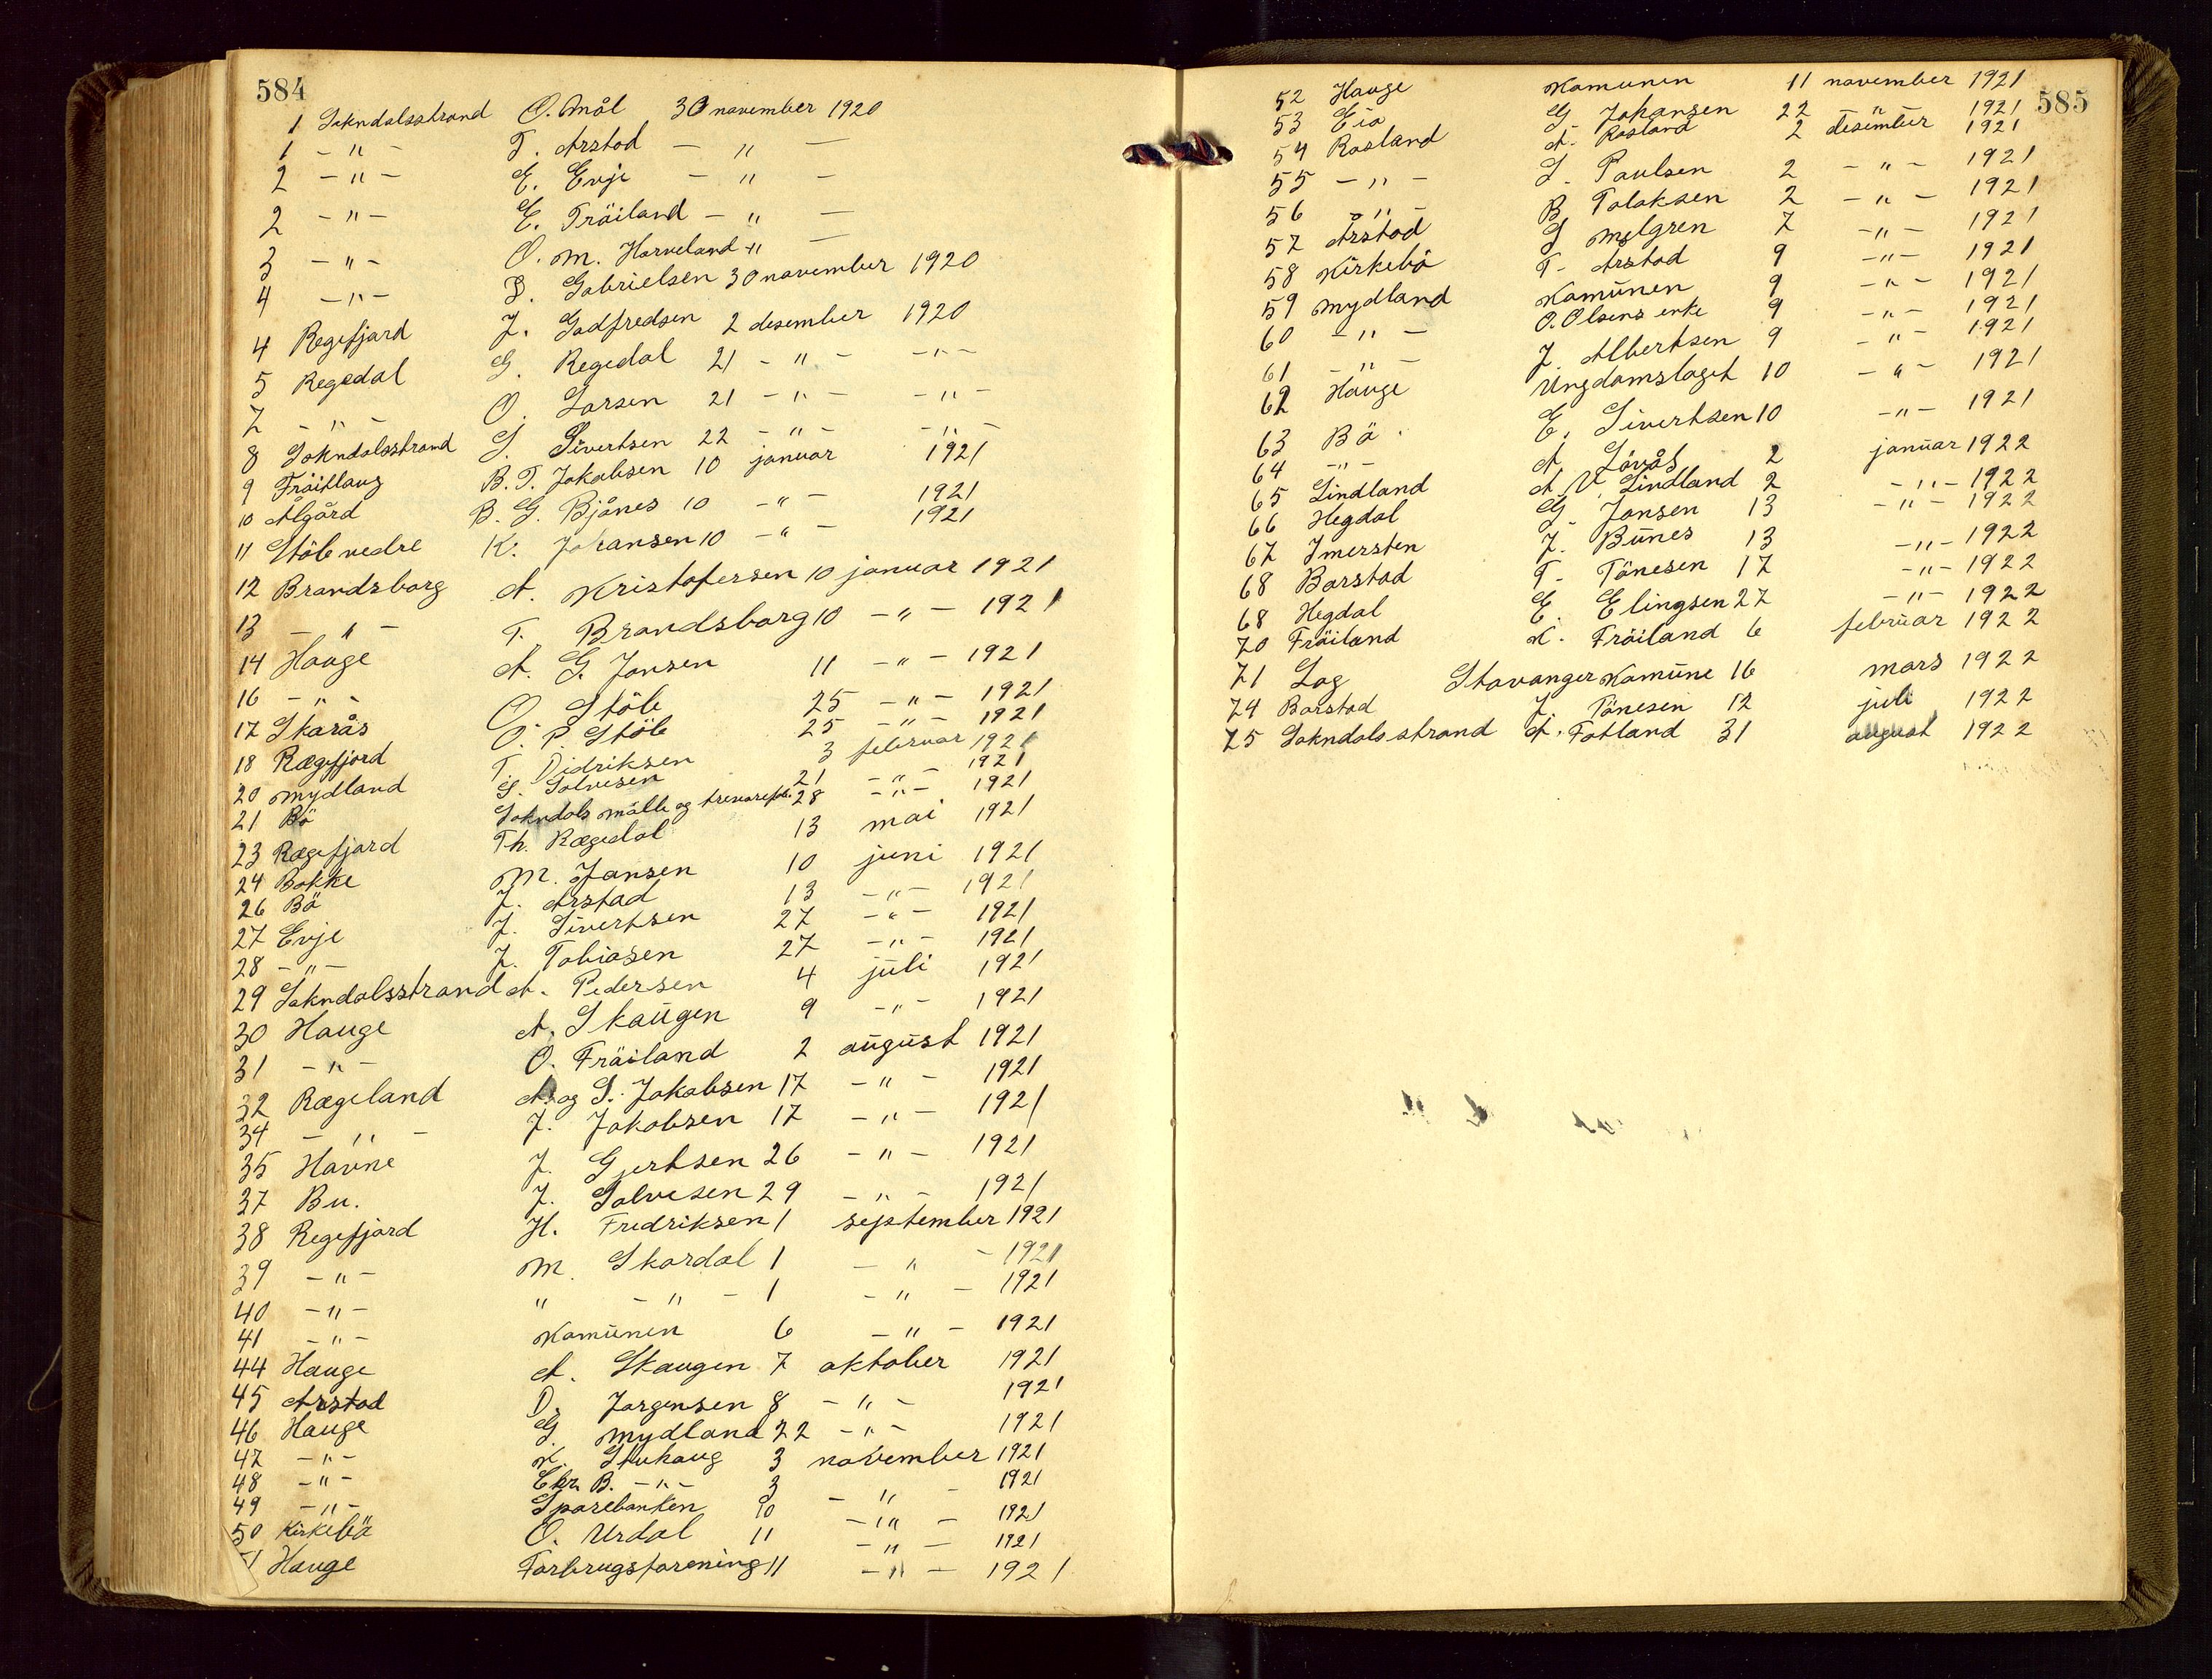 584
1 Sokndalsstrand O. Mål 30 november 1920
1 - " - T. Årstad - " -
2 - " - E. Evje - " -
2 - " - E. Fröiland - " -
3 - " - O. M. Harveland - " -
4 - " - S. Gabrielsen 30 november 1920
4 Regefjord J. Gadfredsen 2 desember 1920
5 Regedal G. Regedal 21 - " - - " -
7 - " - O. Larsen 21 - " - - " -
8 Sokndalsstrand S. Sivertsen 22 - " - - " -
9 Fröitlaug B. T. Jakobsen 10 januar 1921
10 Ålgård B. G. Bjånes 10 - " - 1921
11 Stöle nedre K. Johansen 10 - " - 1921
12 Brandsborg A. Kristofersen 10 januar 1921
13 - " - T. Brandsborg 10 - " - 1921
14 Hauge A. G. Jansen 11 - " - 1921
16 - " - O. Stöle 25 - " - 1921
17 Skarås O. P. Stöle 25 - " - 1921
18 Rægefjord T. Didriksen 3 februar 1921
20 Mydland S. Salvesen 21 - " - 1921
21 Bö Sokndals mölle og 28 - " - 1921
23 Rægefjord Th. Rægedal 13 mai 1921
24 Bakke M. Jansen 10 juni 1921
26 Bö J. Årstad 13 - " - 1921
27 Evje J. Sivertsen 27 - " - 1921
28 - " - J. Tobiasen 27 - " - 1921
29 Sokndalsstrand A. Pedersen 4 juli 1921
30 Hauge A. Skaugen 9 - " - 1921
31 - " - O. Fröiland 2 august 1921
32 Rægeland A. og S. Jakobsen 17 - " - 1921
34 - " - J. Jakobsen 17 - " - 1921
35 Havne J. Gjertsen 26 - " - 1921
37 Bu. J. Salvesen 29 - " - 1921
38 Regefjord H. Fredriksen 1 september 1921
39 - " - M. Skardal 1 - " - 1921
40 - " - " - " - 1 - " - 1921
41 - " - Komunen 6 - " - 1921
44 Hauge A. Skaugen 7 oktober 1921
45 Årstad D. Jorgensen 8 - " - 1921
46 Hauge G. Mydland 22 - " - 1921
47 - " - K. Stuhaug 3 november 1921
48 - " - Chr. B. - " - 3 - " - 1921
49 - " - Sparebanken 10 - " - 1921
50 Kirkebö O. Urdal 11 - " - 1921
51 Hauge Forbrugsforening 11 - " - 1921
585
52 Hauge Komunen 11 november 1921
53 Eia G Johansen 22 - " - 1921
54 Rosland A. Rosland 2 desember 1921
55 - " - S. Paulsen 2 - " - 1921
56 - " - B. Tolaksen 2 - " - 1921
57 Årstad S Melgren 7 - " - 1921
58 Kirkebö T. Årstad 9 - " - 1921
59 Mydland Komunen 9 - " - 1921
60 - " - O. Olsens enke 9 - " - 1921
61 - " - J. Albertsen 9 - " - 1921
62 Hauge Ungdomslaget 10 - " - 1921
63 Bö E. Sivertsen 10 - " - 1921
64 - " - A. Lövås 2 januar 1922
65 Lindland A. V. Lindland 2 - " - 1922
66 Hegdal G. Jansen 13 - " - 1922
67 Imersten J. Bunes 13 - " - 1922
68 Barstad T. Tönesen 17 - " - 1922
68 Hegdal E. Elingsen 27 - " - 1922
70 Fröiland K. Fröiland 6 februar 1922
71 Log Stavanger Komune 16 mars 1922
74 Barstad J. Tönesen 12 juli 1922
75 Sokndalsstrand A. Fotland 31 august 1922